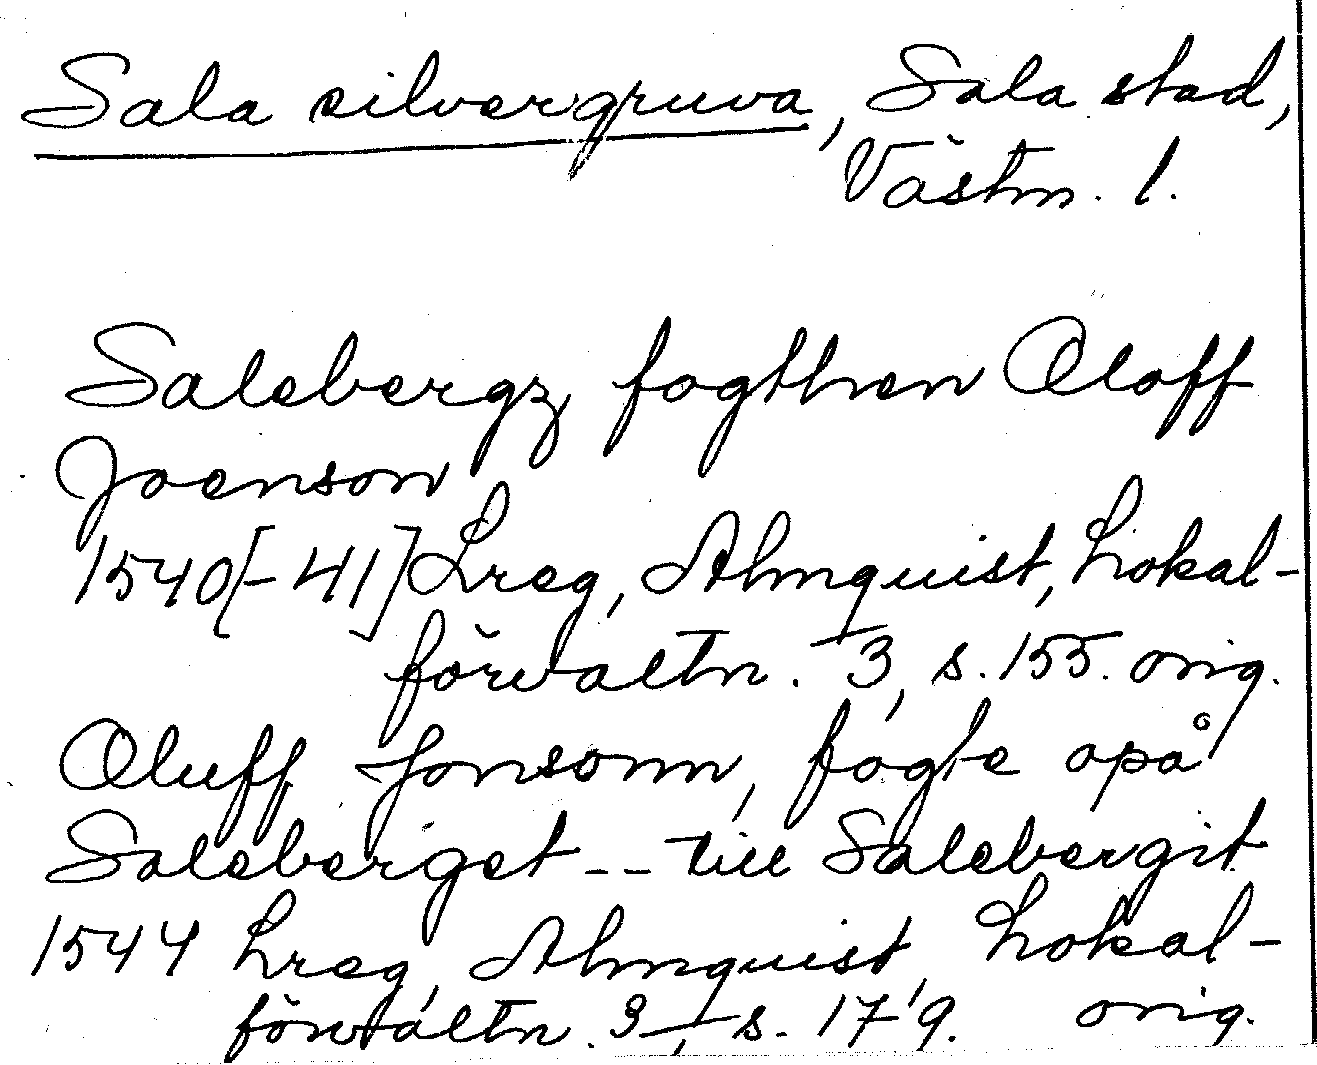 Sala silvergruva, Sala stad,
Västm. l.
Salebergz fogthen Oloff
Joenson
1540[-41] Lreg, Almquist, Lokal-
förvaltn. 3, s. 155. orig.
Oluff Jonsonn, fogte opå
Saleberget -- till Salebergit
1544 Lreg, Almquist, Lokal-
förvaltn. 3, s. 179. orig.